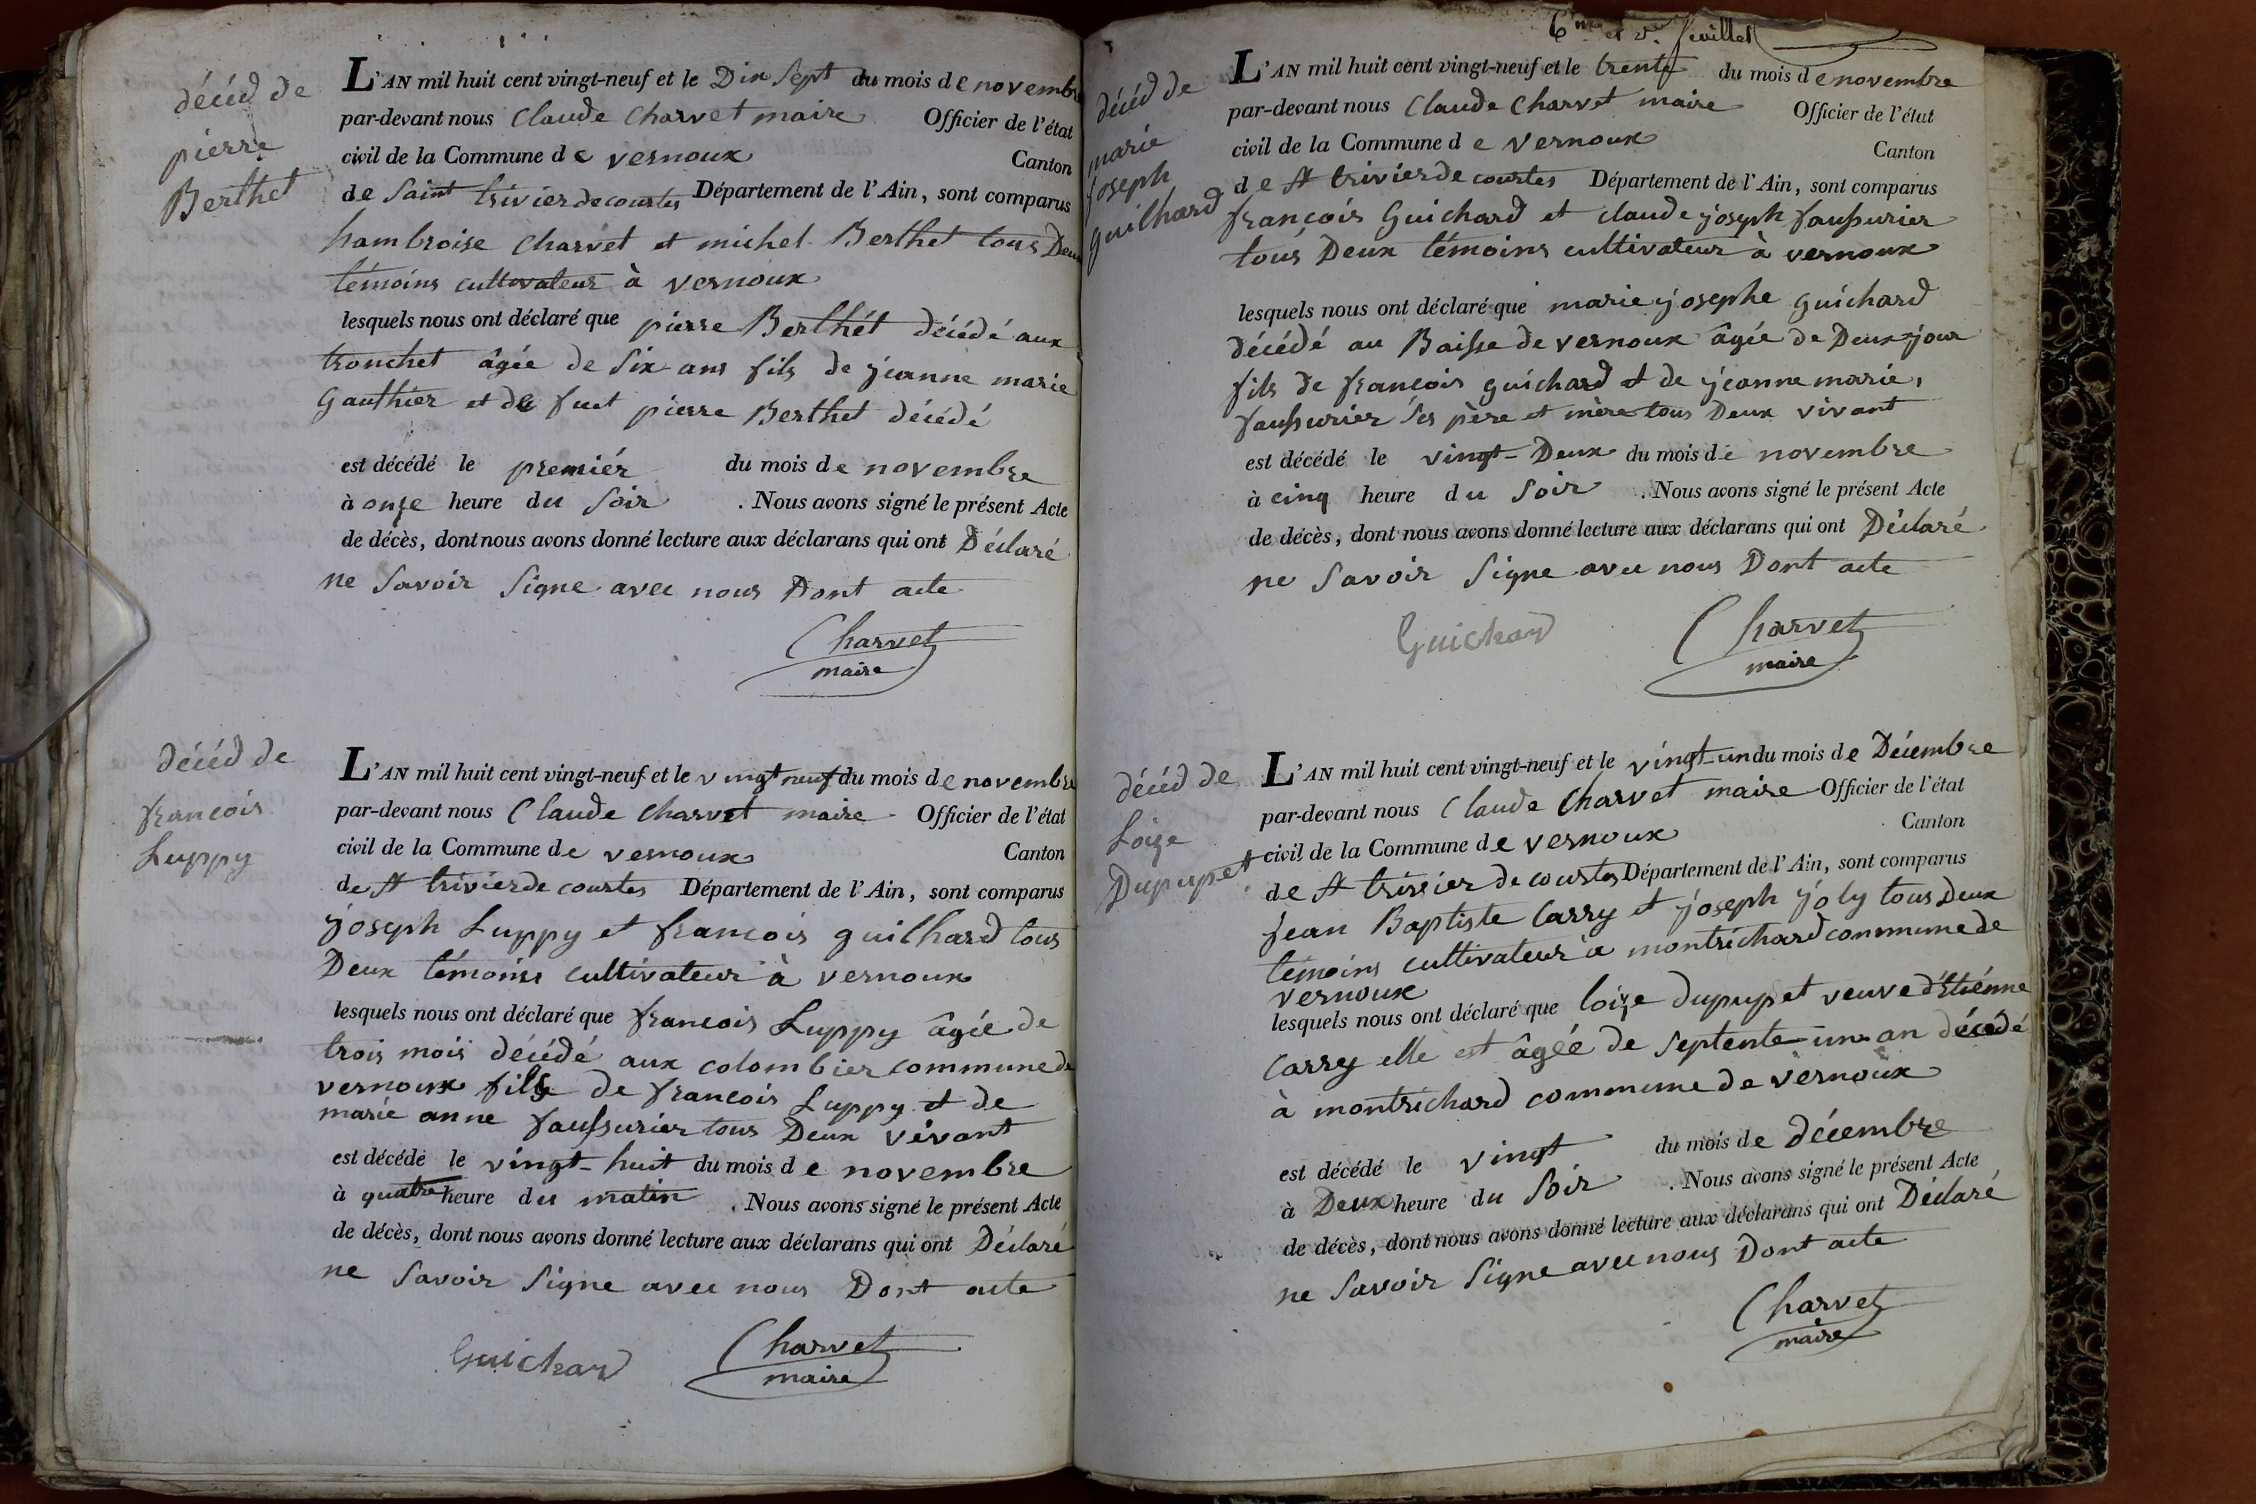 décéd de
pierre
Berthet
L'AN mil huit cent vingt-neuf et le Dix Sept du mois de novembre
par-devant nous Claude Charvet maire Officier de l'état
civil de la Commune de vernoux Canton
de Saint trivier de courtes Département de l'Ain, sont comparus
hambroise Charvet et michel Berthet tous Deux
témoins cultivateur à vernoux
lesquels nous ont déclaré que pierre Berthét décédé aux
tronchet âgée de Six ans fils de jeanne marie
Gauthier et de fuet pierre Berthet décédé
est décédé le premiér du mois de novembre
à onze heure du Soir . Nous avons signé le présent Acte
de décès, dont nous avons donné lecture aux déclarans qui ont Déclaré
ne Savoir Signe avec nous Dont acte
Charvet
maire
décéd de
francois
Luppy
L'AN mil huit cent vingt-neuf et le vingt neuf du mois de novembre
par-devant nous Claude Charvet maire Officier de l'état
civil de la Commune de vernoux Canton
de St trivier de courtes Département de l'Ain, sont comparus
joseph Luppy et francois guilhard tous
Deux témoins cultivateur à vernoux
lesquels nous ont déclaré que francois Luppy âgée de
trois mois décédé aux colombier commune de
vernoux fils de francois Luppy et de
marie anne faussurier tous Deux vivant
est décédé le vingt-huit du mois de novembre
à quatre heure du matin . Nous avons signé le présent Acte
de décès, dont nous avons donné lecture aux déclarans qui ont Déclaré
ne Savoir Signe avec nous Dont acte
Guichard
Charvet
maire
6me et d. feuillet
décéd de
marie
joseph
guilhard
L'AN mil huit cent vingt-neuf et le trente du mois de novembre
par-devant nous Claude Charvet maire Officier de l'état
civil de la Commune de vernoux Canton
de St trivier de courtes Département de l'Ain, sont comparus
françois Guichard et claude joseph faussurier
tous Deux témoins cultivateur à vernoux
lesquels nous ont déclaré que marie josephe guichard
décédé au Baisse de vernoux âgée de Deux jour
fils de francois guichard et de jeanne marie
faussurier Ses père et mère tous Deux vivant
est décédé le vingt-Deux du mois de novembre
à cinq heure du Soir . Nous avons signé le présent Acte
de décès, dont nous avons donné lecture aux déclarans qui ont Déclaré
ne Savoir Signe avec nous Dont acte
Guichard
Charvet
maire
décéd de
Loize
Dupupet
L'AN mil huit cent vingt-neuf et le vingt-un du mois de Décembre
par-devant nous Claude Charvet maire Officier de l'état
civil de la Commune de vernoux Canton
de St trivier de courtes Département de l'Ain, sont comparus
jean Baptiste Carry et joseph joly tous Deux
témoins cultivateur à montrichard commune de
vernoux
lesquels nous ont déclaré que loize dupupet veuve d'Etiénne
Carry elle est âgée de septente-un an décédé
à montrichard commune de vernoux
est décédé le vingt du mois de décembre
à Deux heure du Soir . Nous avons signé le présent Acte
de décès, dont nous avons donné lecture aux déclarans qui ont Déclaré
ne Savoir Signe avec nous Dont acte
Charvet
maire